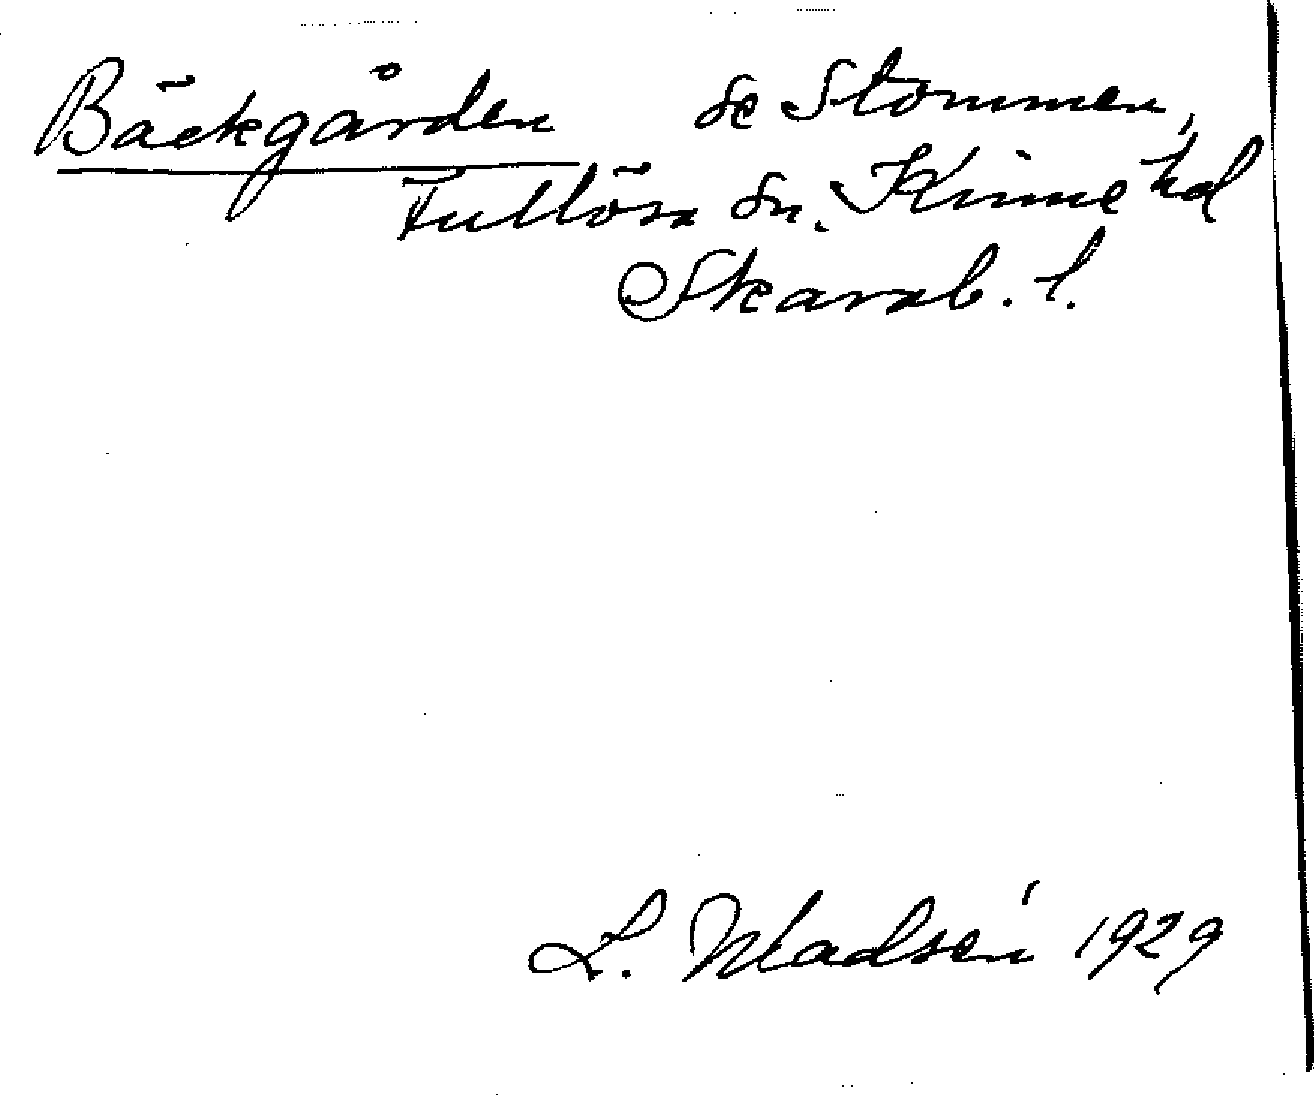 Bäckgården se Stommen,
Fullösa sn. Kinne hd
Skarab. l.
L. Madsén 1929